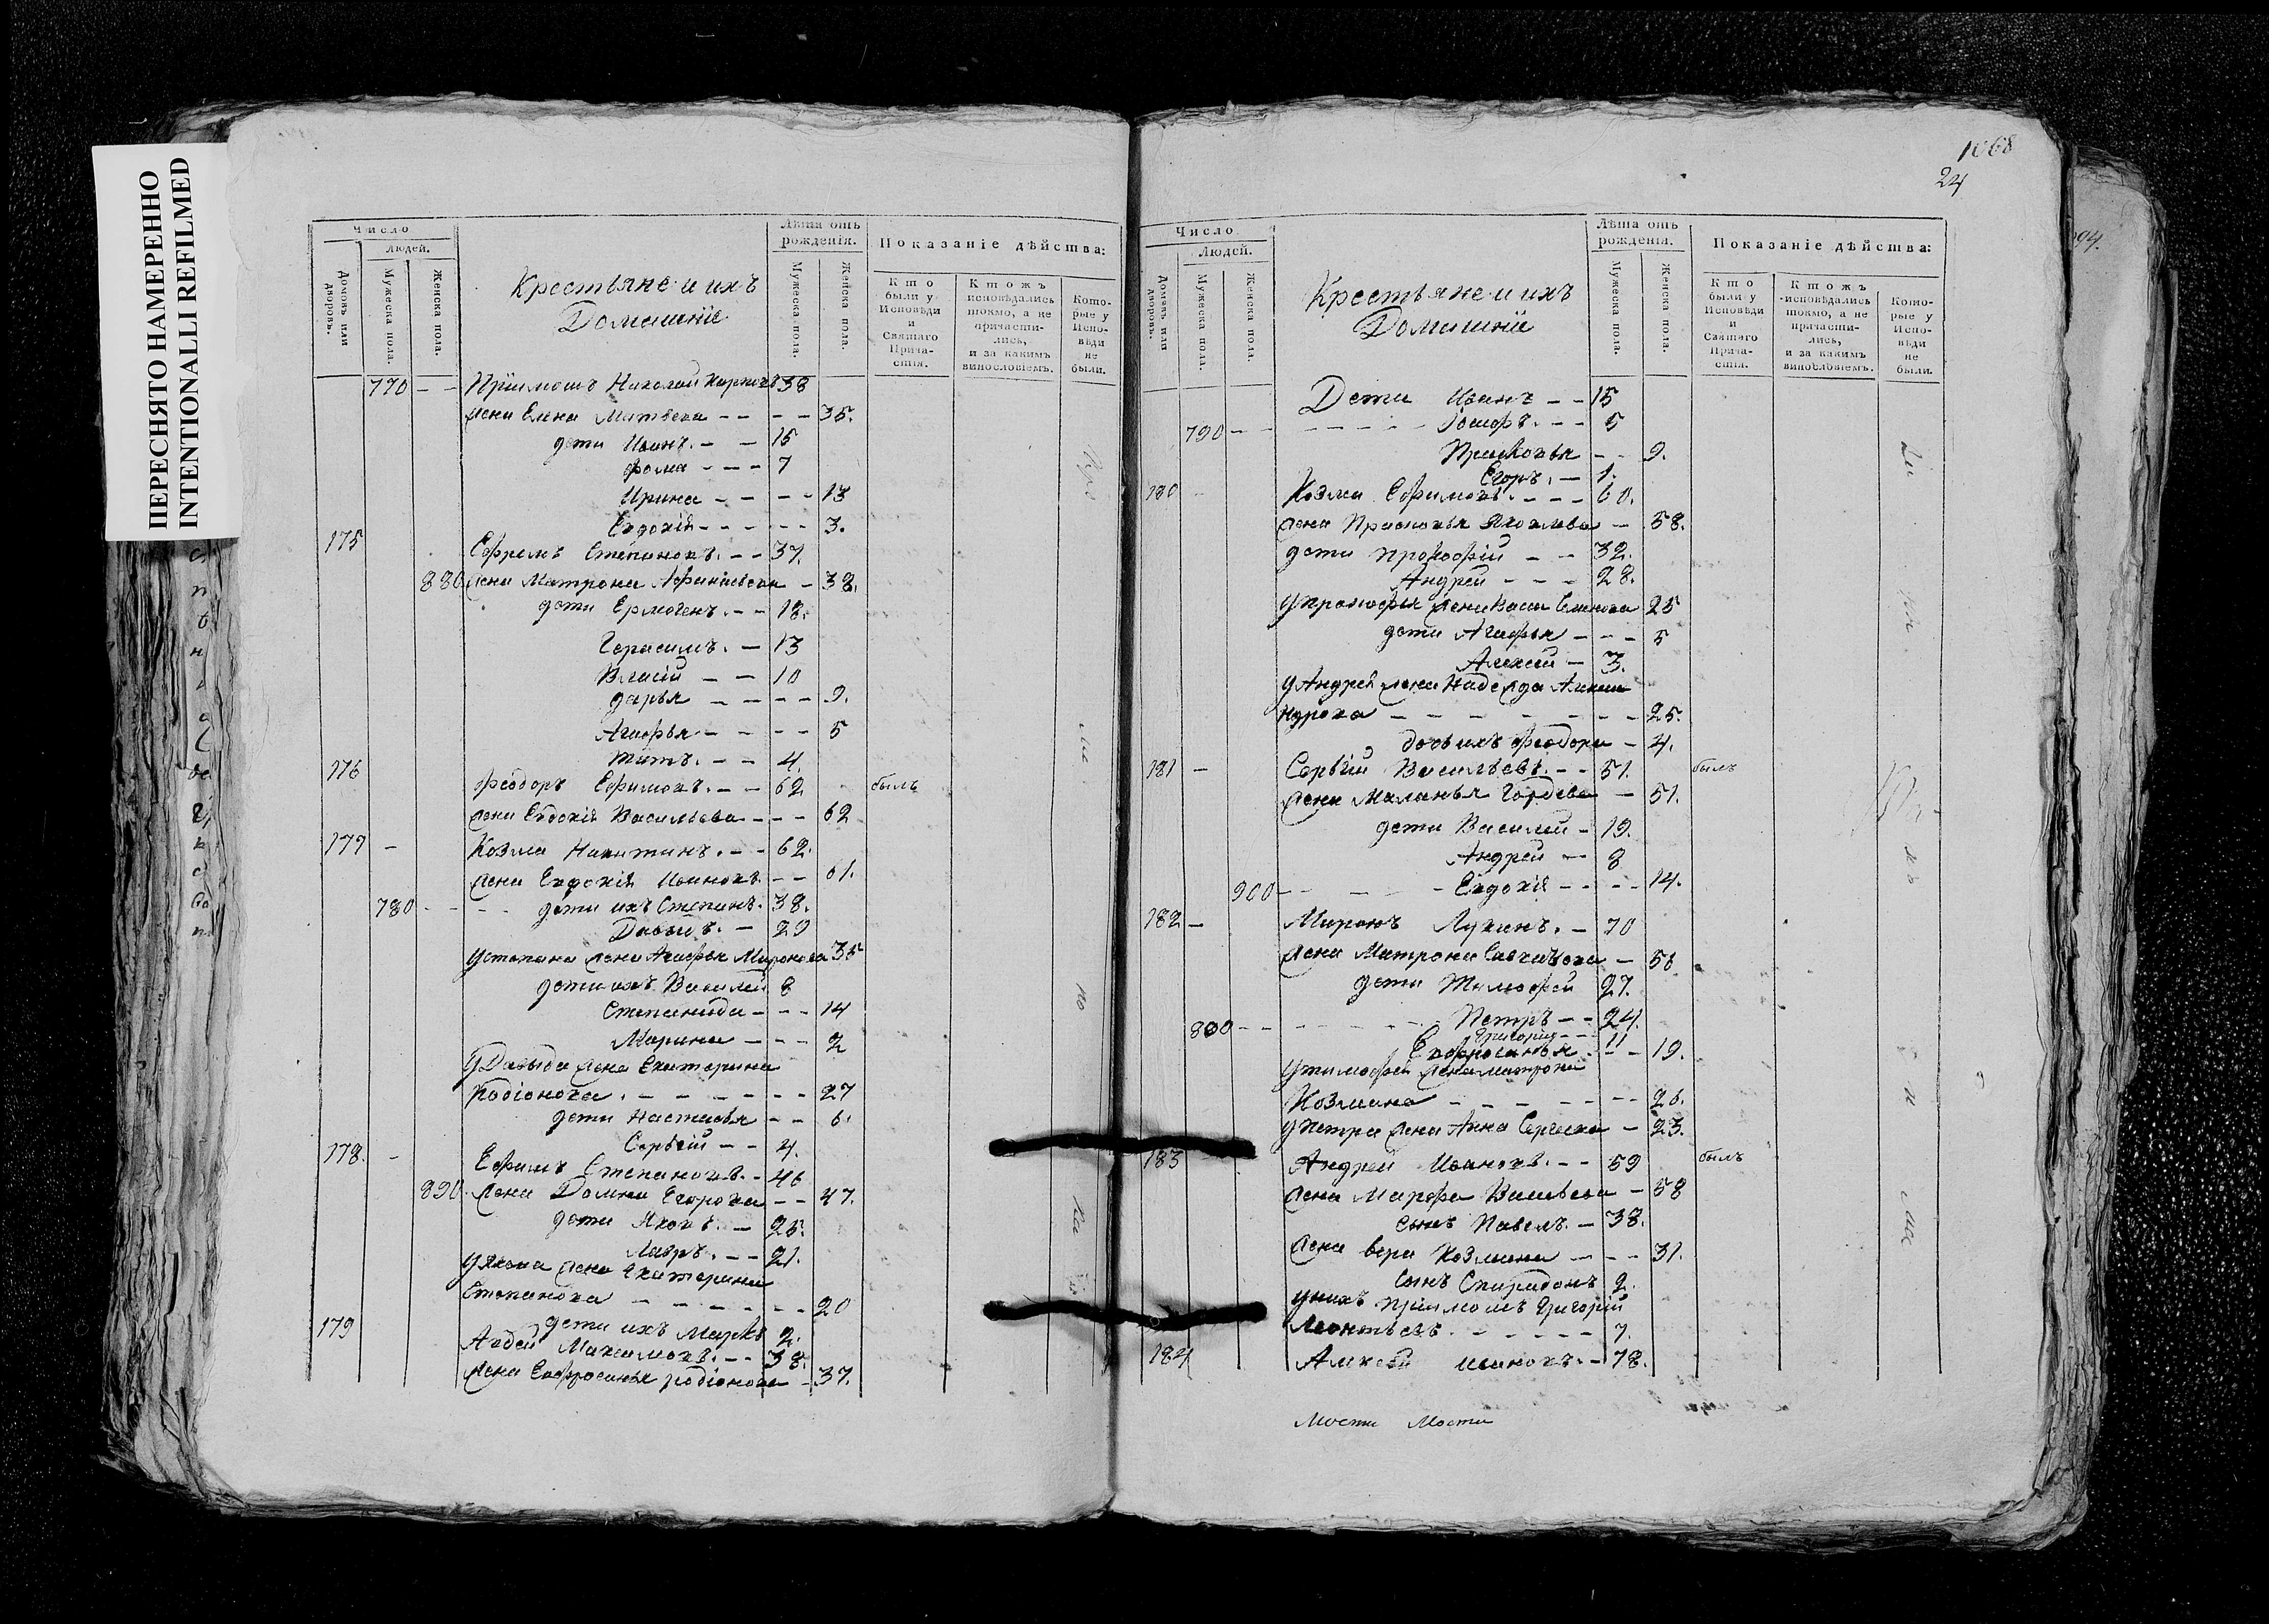 ПЕРЕСНЯТО НАМЕРЕННО
INTENTIONALLI REFILMED
Число
Людей.
Домовъ или дворовъ.
Мужеска пола.
Женска пола.
Крестьяне и ихъ
Домашніе
Лѣта отъ рожденія.
Мужеска пола.
Женска пола.
Показаніе дѣйства:
Кто были у Исповѣди и Святаго Причастія.
Ктожъ исповѣдались токмо, а не причастились, и за какимъ винословіемъ.
Которые у Исповѣди не были.
770 – – Пріимошъ Николай Карповъ 38
жена Елена Матвеева – – – – 35.
дети Иванъ. – – 15
Фома – – – 7
Ирина – – – – 13
Евдокія – – – – – 3.
175 Ефремъ Степановъ. – – 37.
880 жена Матрона Афанасьева – 38.
дети Ермогенъ. – – 18.
Герасимъ. – 13
Власій – – 10
Дарья – – – – 9.
Агафья – – – – 5
Титъ. – – 4.
176 Феодоръ Ефимовъ. – – 62 былъ
жена Евдокія Васильева – – – 62
177 – Козма Никитинъ. – – 62.
жена Евдокія Иванова – – 61.
780 – – – дети ихъ Степанъ. 38.
Давыдъ. – 29
у Степана жена Агафья Миронова 35
дети ихъ Василей 8
Степанида – – – 14
Марина – – – 2
у Давыда жена Екатерина
Родіонова. – – – – – – – 27
дети Настасья – – 6.
Сергѣй – – 4.
178. – Ефимъ Степановъ. – 46
890. жена Домна Егорова – – 47.
дети Яковъ. – 25.
Лавръ. – – 21.
у Якова жена Екатерина
Степанова – – – – – – – 20
дети ихъ Марко 2.
179 Авдей Максимовъ. – – 38.
жена Евфросинья Родіонова – 37.
1068
24
94.
Число
Людей.
Домовъ или дворовъ.
Мужеска пола.
Женска пола.
Крестьяне и ихъ
Домашніе
Лѣта отъ рожденія.
Мужеска пола.
Женска пола.
Показаніе дѣйства:
Кто были у Исповѣди и Святаго Причастія.
Ктожъ исповѣдались токмо, а не причастились, и за какимъ винословіемъ.
Которые у Исповѣди не были.
Дети Иванъ – – 15
790 – – – – – – – Іосифъ. – – – 5
Прасковья – – 9.
Егоръ. – 1.
180 – Козма Ефимовъ. – – – 60.
жена Прасковья Яковлева – 58.
дети Прокофій – – 32.
Андрей – – – 28.
у Прокофья жена Васса Семенова 25
дети Агафья – – – 5
Алексей – 3.
у Андрея жена Надежда Алекса
ндрова – – – – – – – – 25.
дочь ихъ Феодора – 4.
181 – Сергѣй Васильевъ. – – 51. былъ
жена Маланья Гордеева – 51.
дети Василей – 19.
Андрей – 8
900 – – – – – Евдокія – – – – 14.
182 – Миронъ Лукинъ. – 70
жена Матрона Савельева – 56
дети Тимофей 27.
800 – – – – – – – Петръ – – 24.
Григорій – – 11
Евфросинья – – – 19.
у Тимофея жена Матрона
Козмина – – – – – – – 26.
у Петра жена Анна Сергеева – 23.
183 Андрей Ивановъ. – – 59 былъ
жена Марфа Васильева – 58
сынъ Павелъ. – 38.
жена Вера Козмина – – – 31.
сынъ Спиридонъ 2.
у нихъ пріимошъ Григорій
Леонтьевъ. – – – – – – 7.
184 Алексей Ивановъ. – 78.